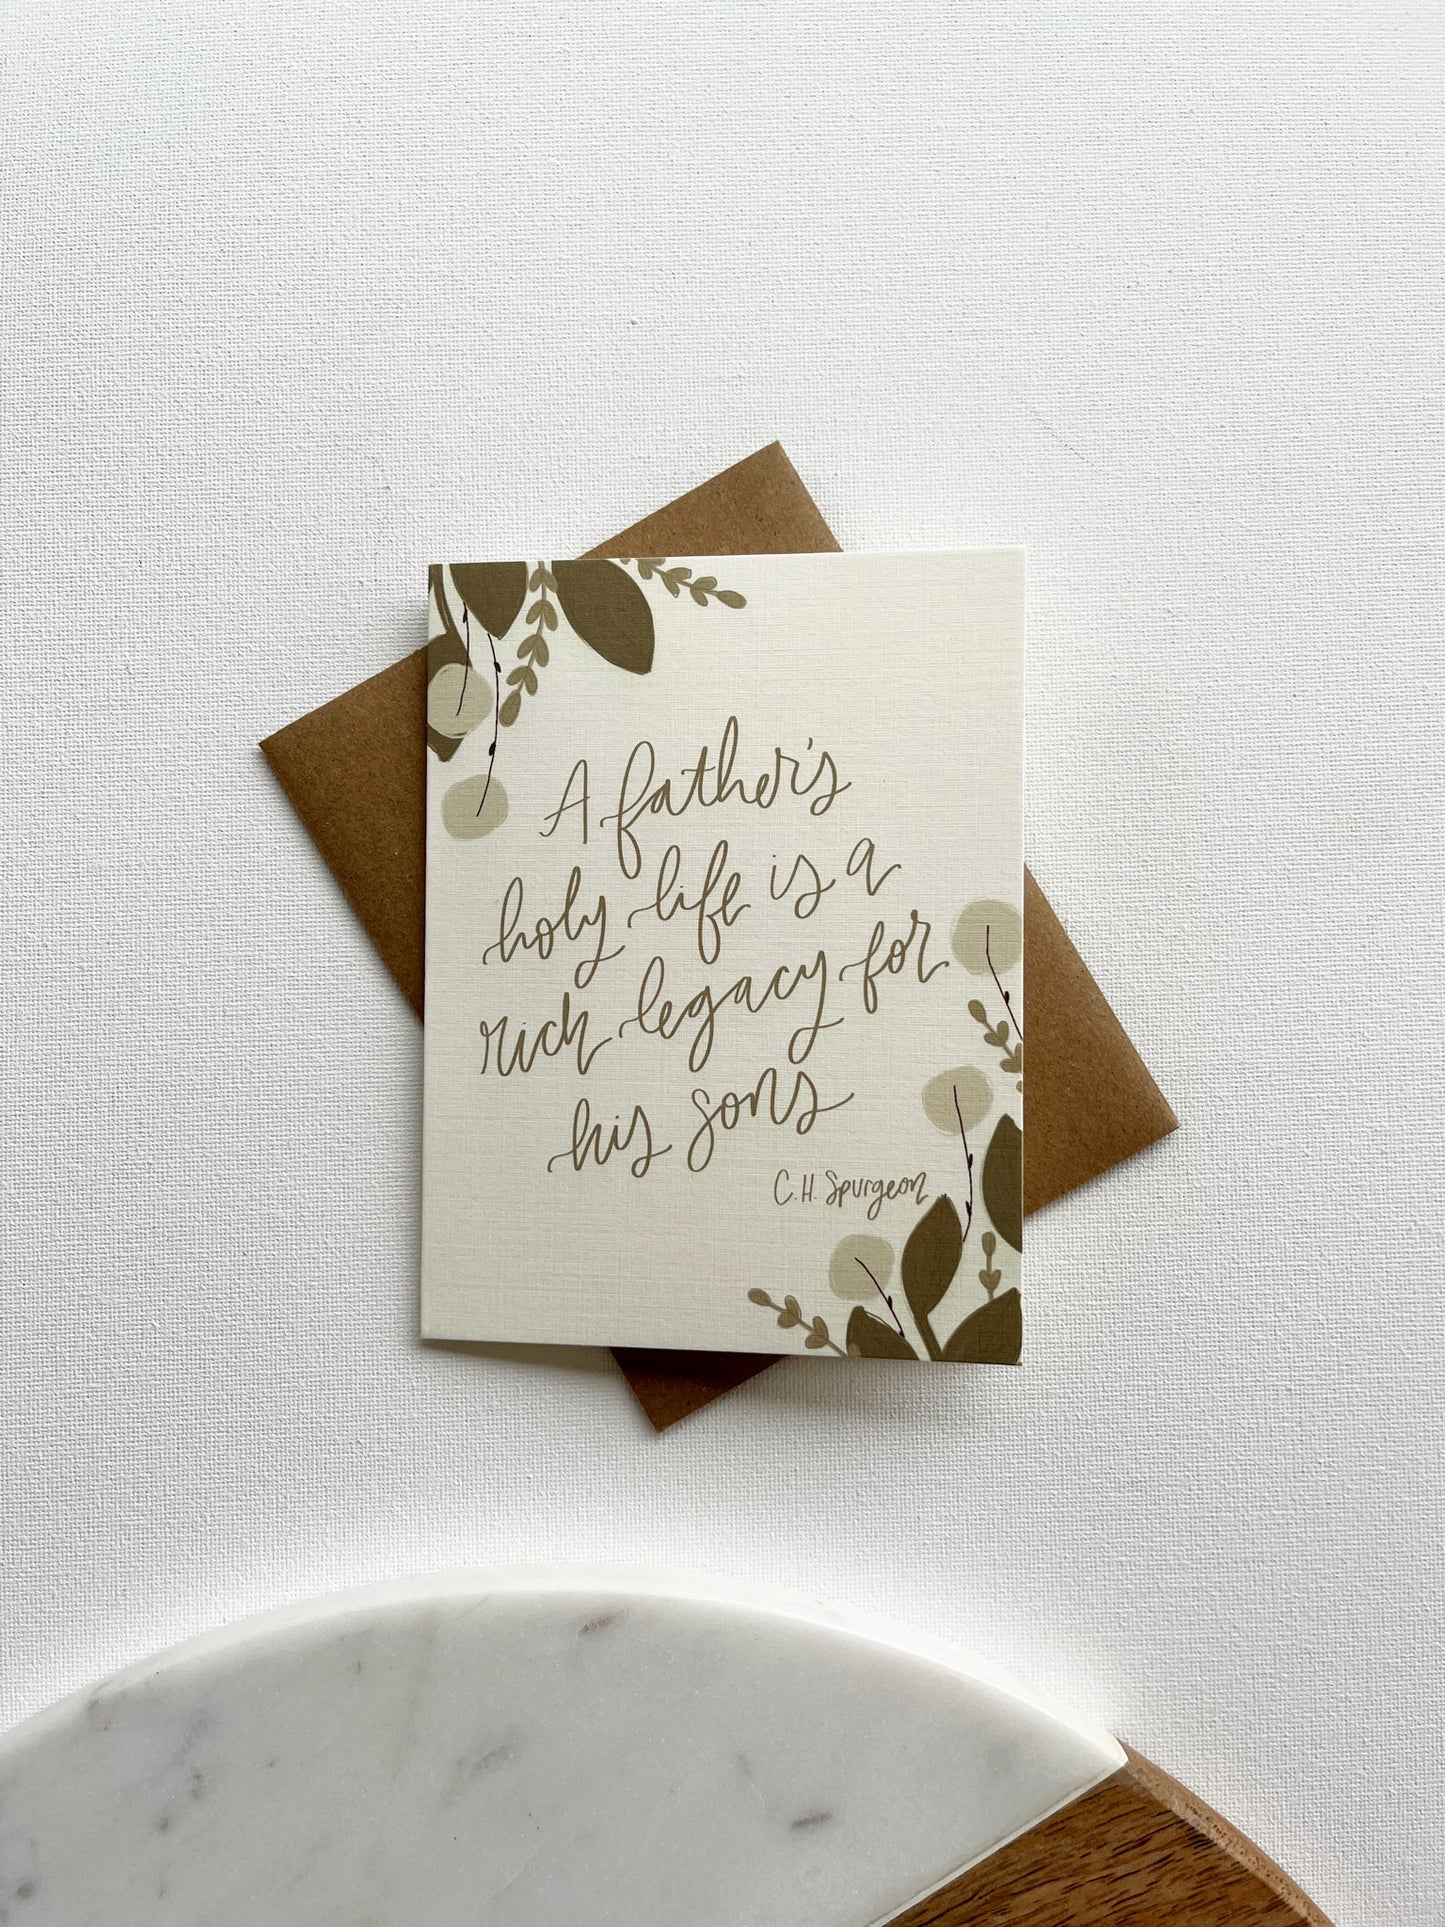 A father's
holy life is a
rich legacy for
his sons
C.H. Spurgeon